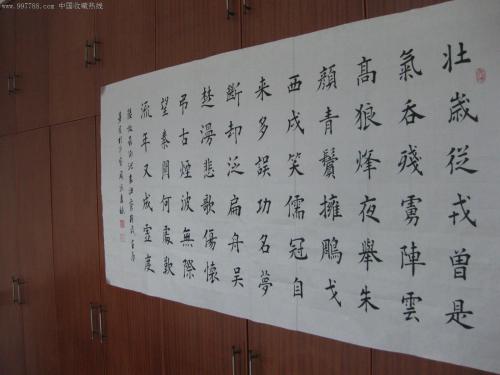 www.997788.com 中国收藏热线
壯歲從戎曾是
氣吞殘虜陣雲
高狼烽夜舉朱
顏青鬢擁鵰戈
西戍笑儒冠自
来多誤功名夢
斷却泛扁舟吳
楚漫悲歌傷懷
弔古煙波無際
望秦關何處歎
流年又成虛度